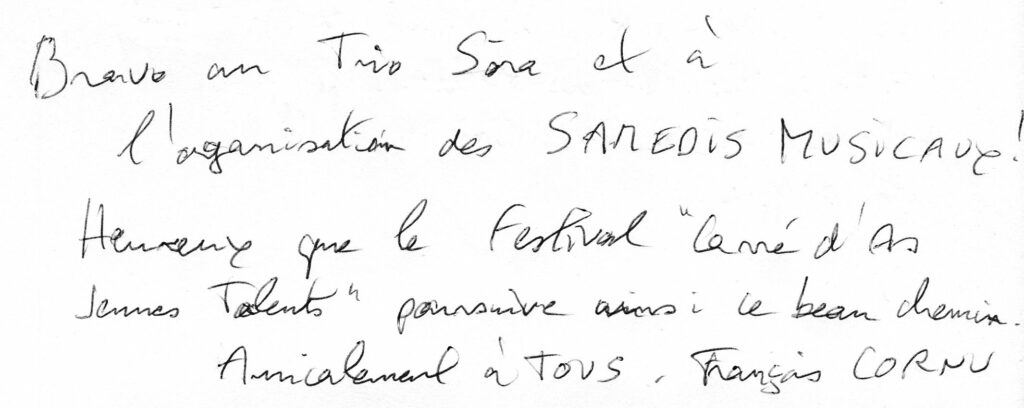 Bravo au Trio Sōra et à
l'organisation des SAMEDIS MUSICAUX !
Heureux que le Festival "Carré d'As
Jeunes Talents" poursuive ainsi ce beau chemin.
Amicalement à TOUS. François CORNU